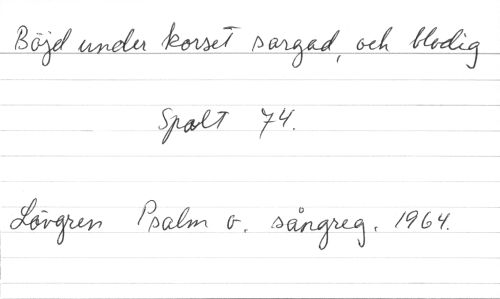 Böjd under korset sargad, och blodig
Spalt 74.
Lövgren Psalm o. sångreg. 1964.